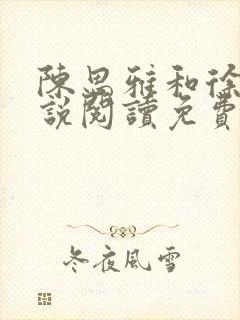 陳思雅和徐
說閱讀免費
冬夜風雪